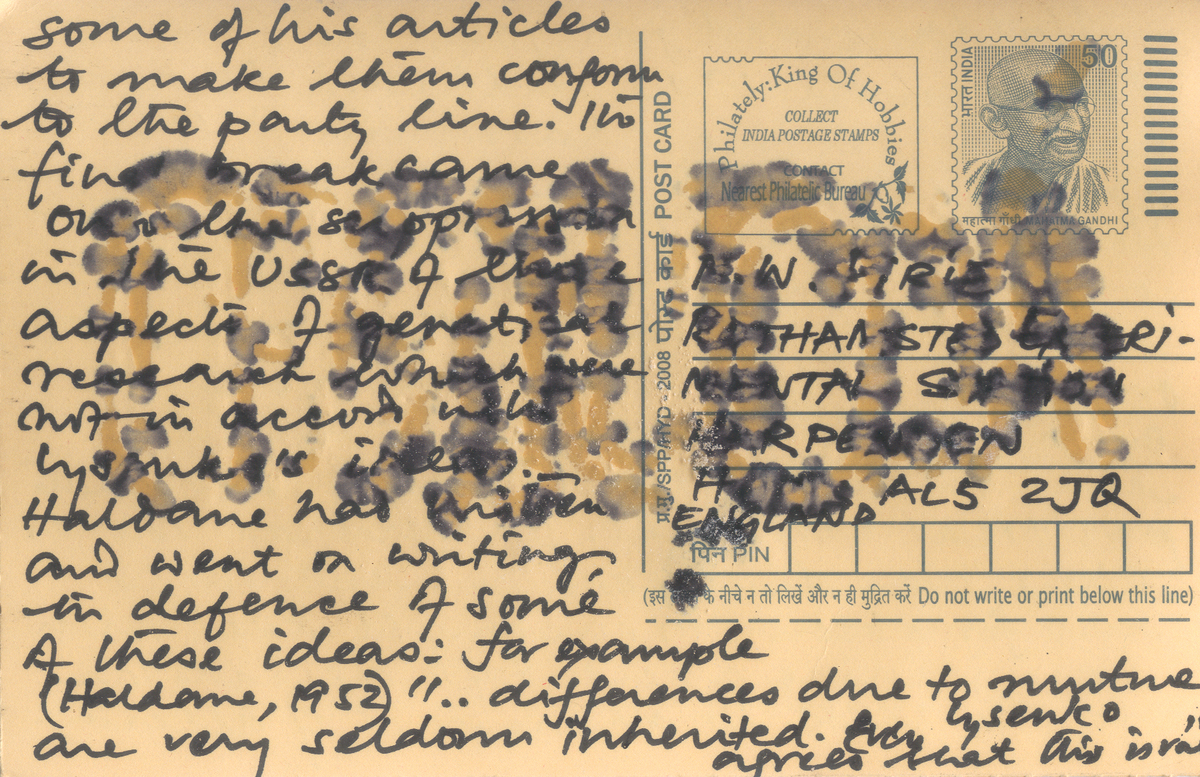 some of his articles
to make them conform
to the party line. His
final break came
over the suppression
in the USSR of those
aspects of genetical
research which were
not in accord with
Lysenko's ideas.
Haldane had written
and went on writing,
in defence of some
of these ideas: for example
(Haldane, 1952) ".. differences due to nurture
are very seldom inherited. Even Lysenko
agrees that this is
Philately: King Of Hobbies
COLLECT
INDIA POSTAGE STAMPS
CONTACT
Nearest Philatelic Bureau
भारत INDIA
50
महात्मा गाँधी MAHATMA GANDHI
प्र.मु./SPP/HYD - 2008 पोस्ट कार्ड POST CARD
N.W. PIRIE
ROTHAMSTED EXPERI-
MENTAL STATION
HARPENDEN
AL5 2JQ
ENGLAND
पिन PIN
(इस के नीचे न तो लिखें और न ही मुद्रित करें Do not write or print below this line)